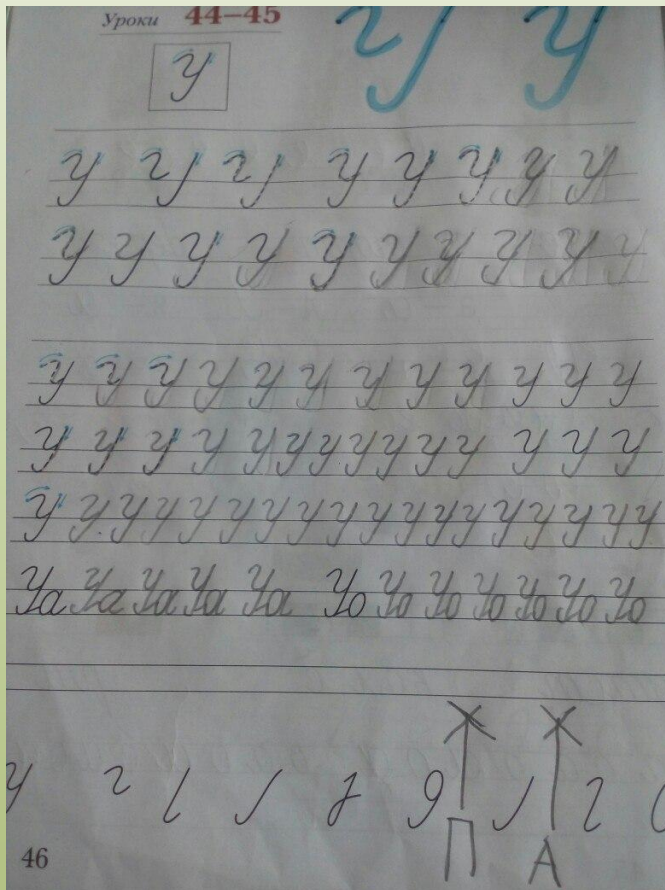 Уроки 44–45
У У У
У У У У У У У У
У У У У У У У У У У
У У У У У У У У У У У У
У У У У У У У У У У У У У У
У У У У У У У У У У У У У У У У У У
Уа Уа Уа Уа Уа Уо Уо Уо Уо Уо Уо Уо
П А
46